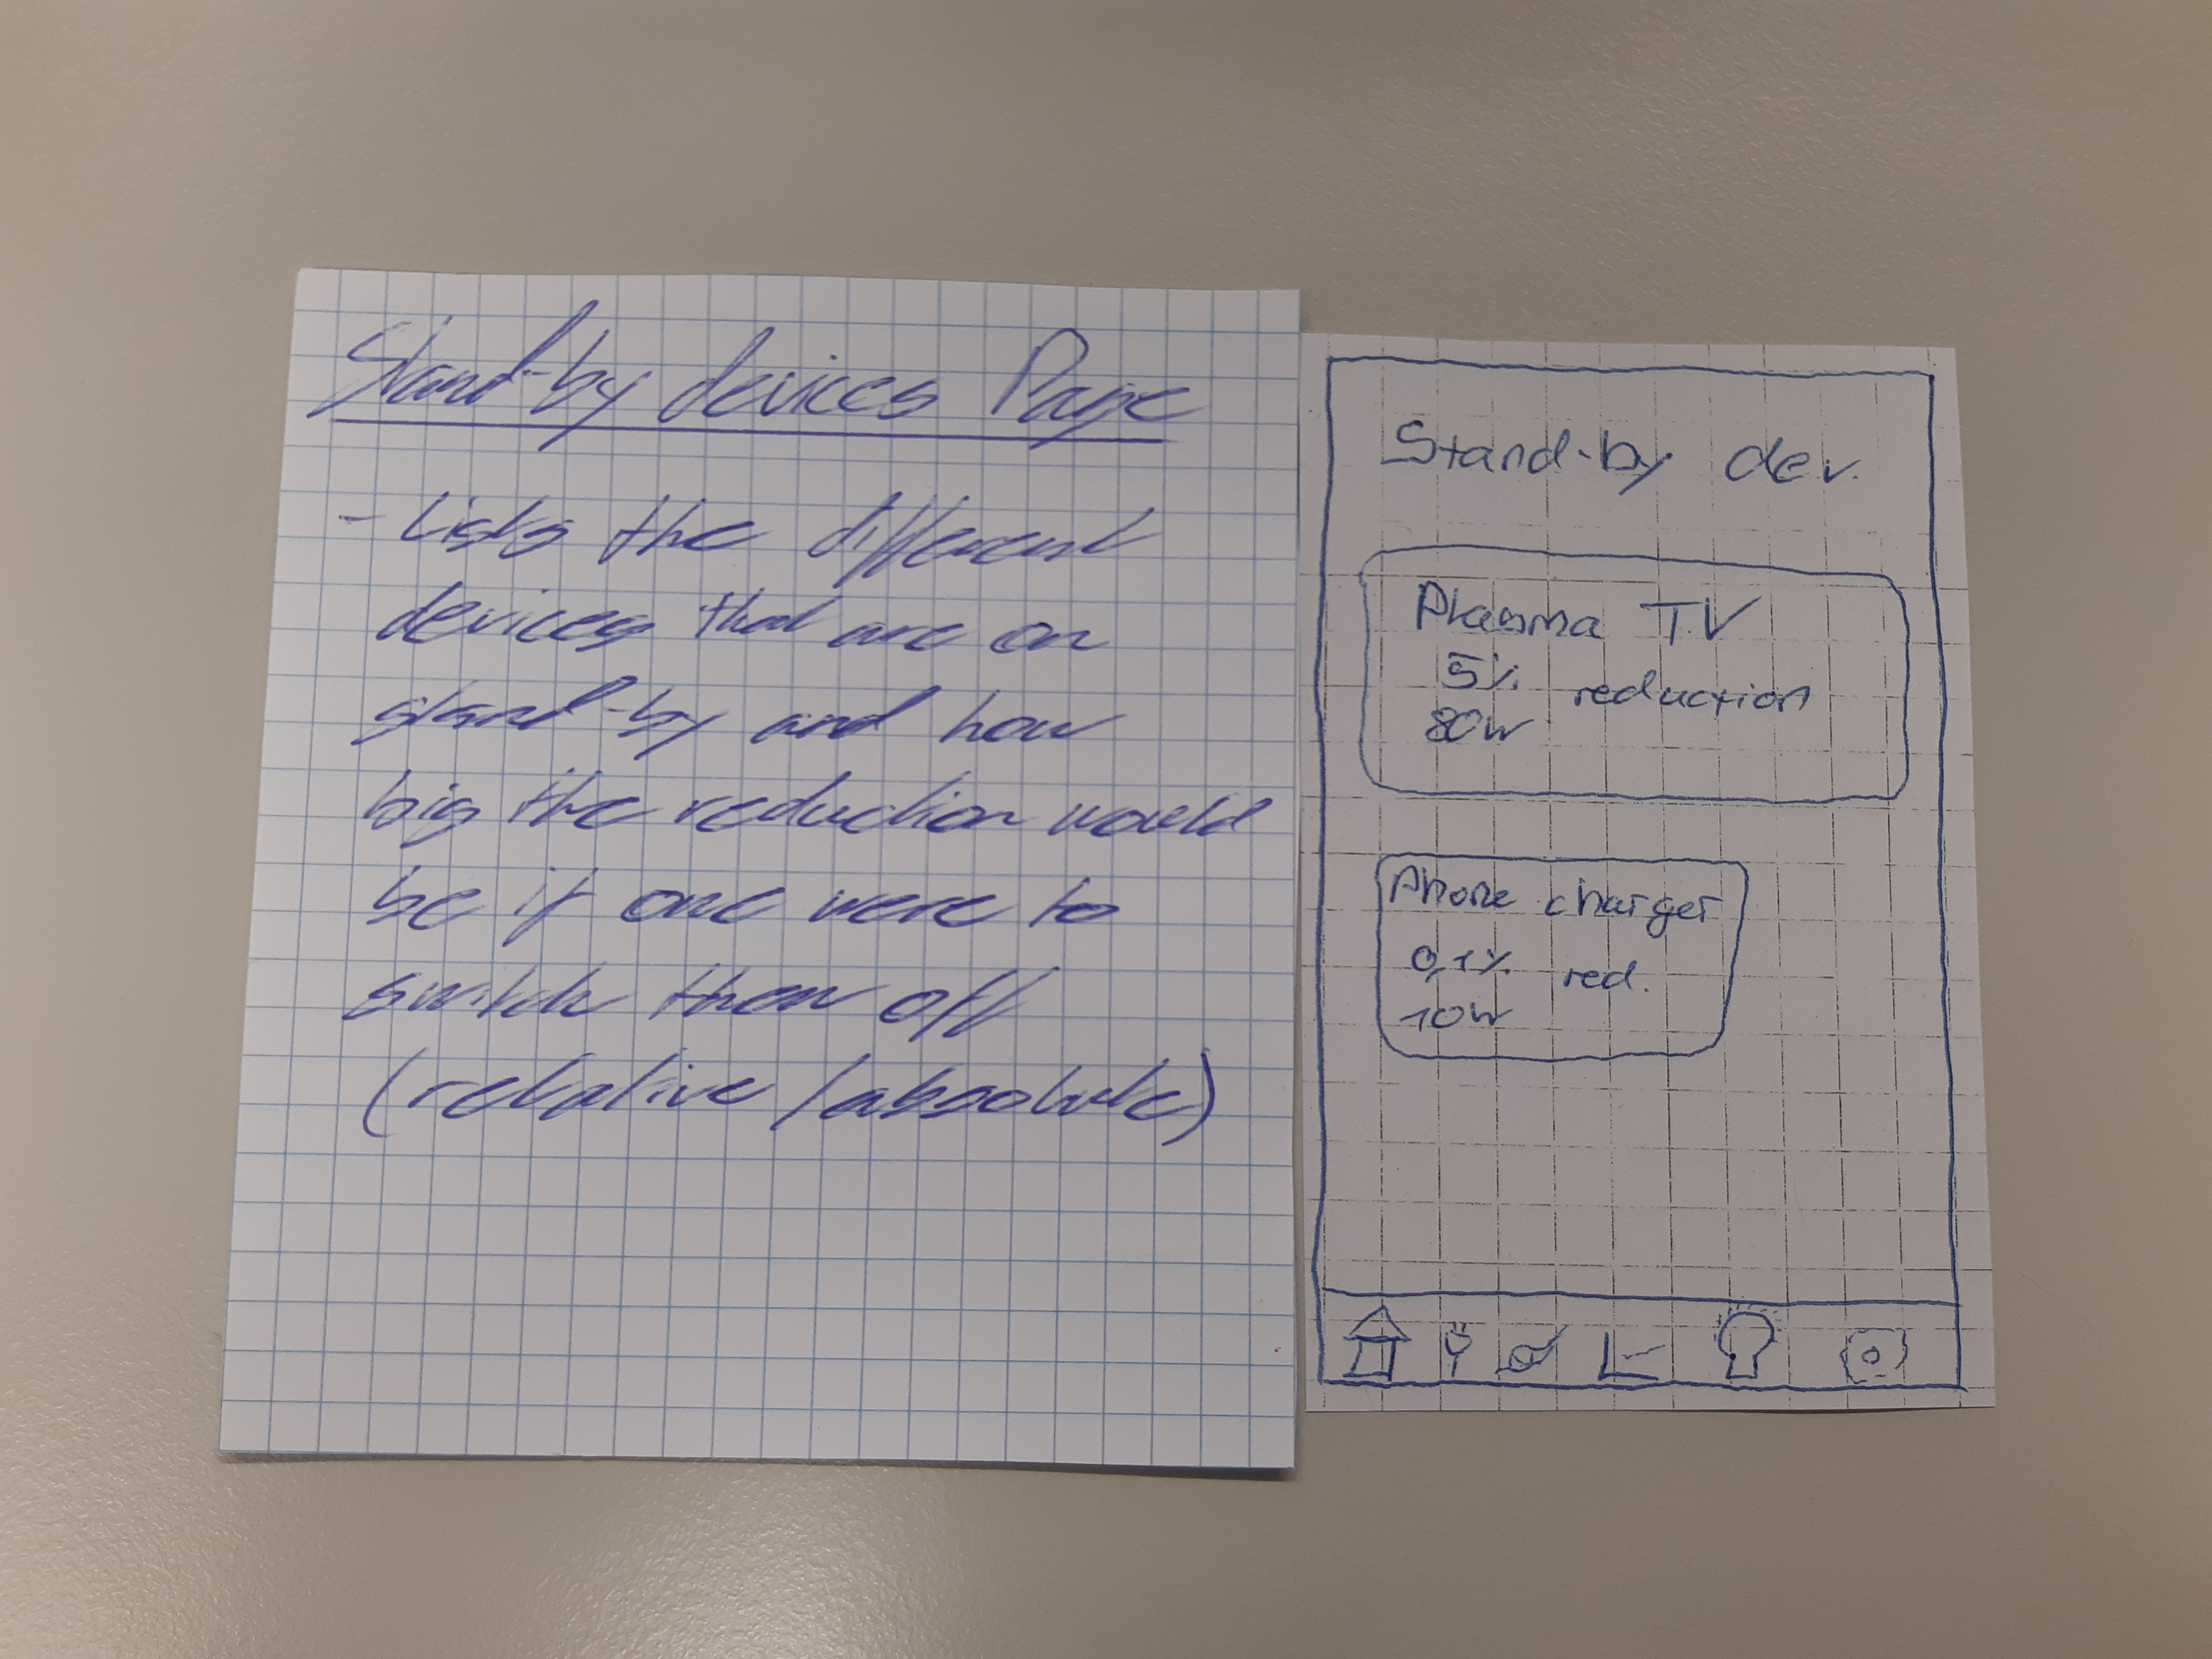 Stand-by devices Page
- Lists the different
devices that are on
stand-by and how
big the reduction would
be if one were to
switch them off
(relative/absolute)
Stand-by dev.
Plasma TV
5% reduction
80W
Phone charger
0,1% red.
10W